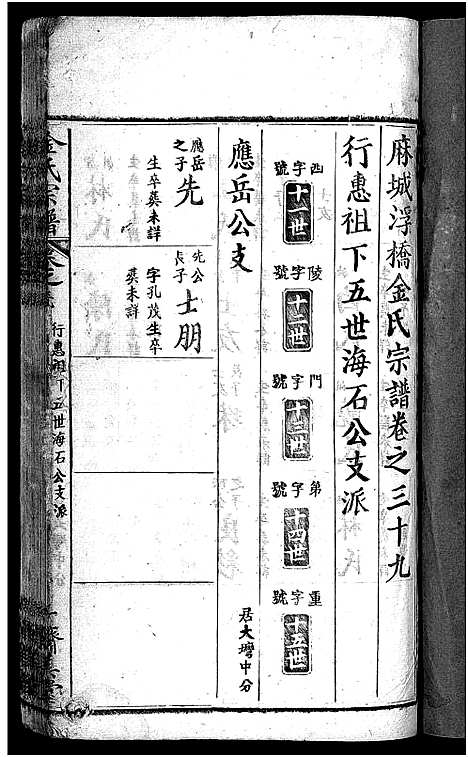 麻城浮橋金氏宗譜卷之三十九
行惠祖下五世海石公支派
西字號 十一世
陵字號 十二世
門字號 十三世
第字號 十四世
重字號 十五世
應岳公支
居大灣中分
應岳之子 先
生卒葬未詳
先公長子 士朋
字孔茂生卒
葬未詳
金氏宗譜
行惠祖下五世海石公支派